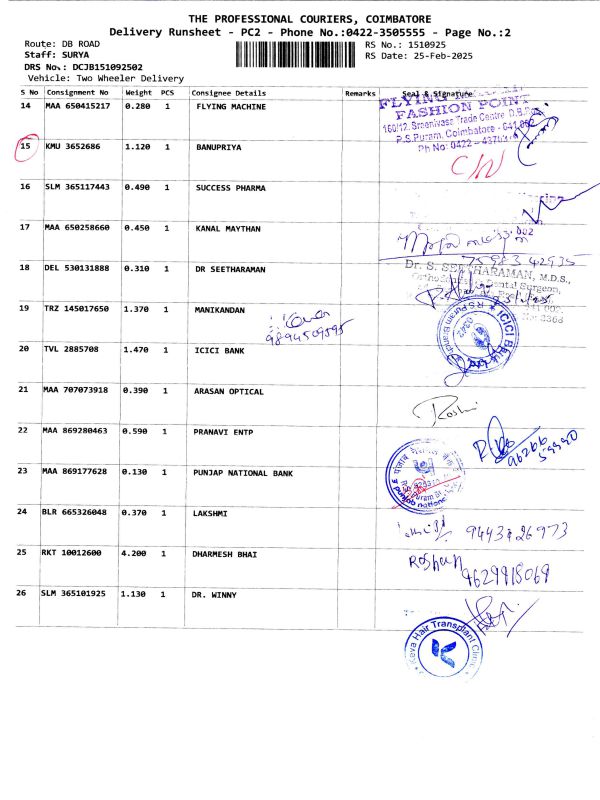 THE PROFESSIONAL COURIERS, COIMBATORE
Delivery Runsheet - PC2 - Phone No.:0422-3505555 - Page No.:2
Route: DB ROAD
RS No.: 1510925
Staff: SURYA
RS Date: 25-Feb-2025
DRS No.: DCJB151092502
Vehicle: Two Wheeler Delivery
S No Consignment No Weight PCS Consignee Details Remarks Seal & Signature
14 MAA 650415217 0.280 1 FLYING MACHINE
FASHION POINT
160/12, Sreenivasa Trade Centre D.B.
P.S.Puram, Coimbatore - 641 002
Ph No: 0422 -
15 KMU 3652686 1.120 1 BANUPRIYA
16 SLM 365117443 0.490 1 SUCCESS PHARMA
17 MAA 650258660 0.450 1 KANAL MAYTHAN
75983 42935
18 DEL 530131888 0.310 1 DR SEETHARAMAN
Dr. S. SEETHARAMAN, M.D.S.,
Dental Surgeon,
19 TRZ 145017650 1.370 1 MANIKANDAN
9894509595
20 TVL 2885708 1.470 1 ICICI BANK
ICICI Bank Ltd.
21 MAA 707073918 0.390 1 ARASAN OPTICAL
Roshni
22 MAA 869280463 0.590 1 PRANAVI ENTP
23 MAA 869177628 0.130 1 PUNJAP NATIONAL BANK
punjab national
24 BLR 665326048 0.370 1 LAKSHMI
9443426973
25 RKT 10012600 4.200 1 DHARMESH BHAI
Roshan
9629918069
26 SLM 365101925 1.130 1 DR. WINNY
Keva Hair Transplant Clinic